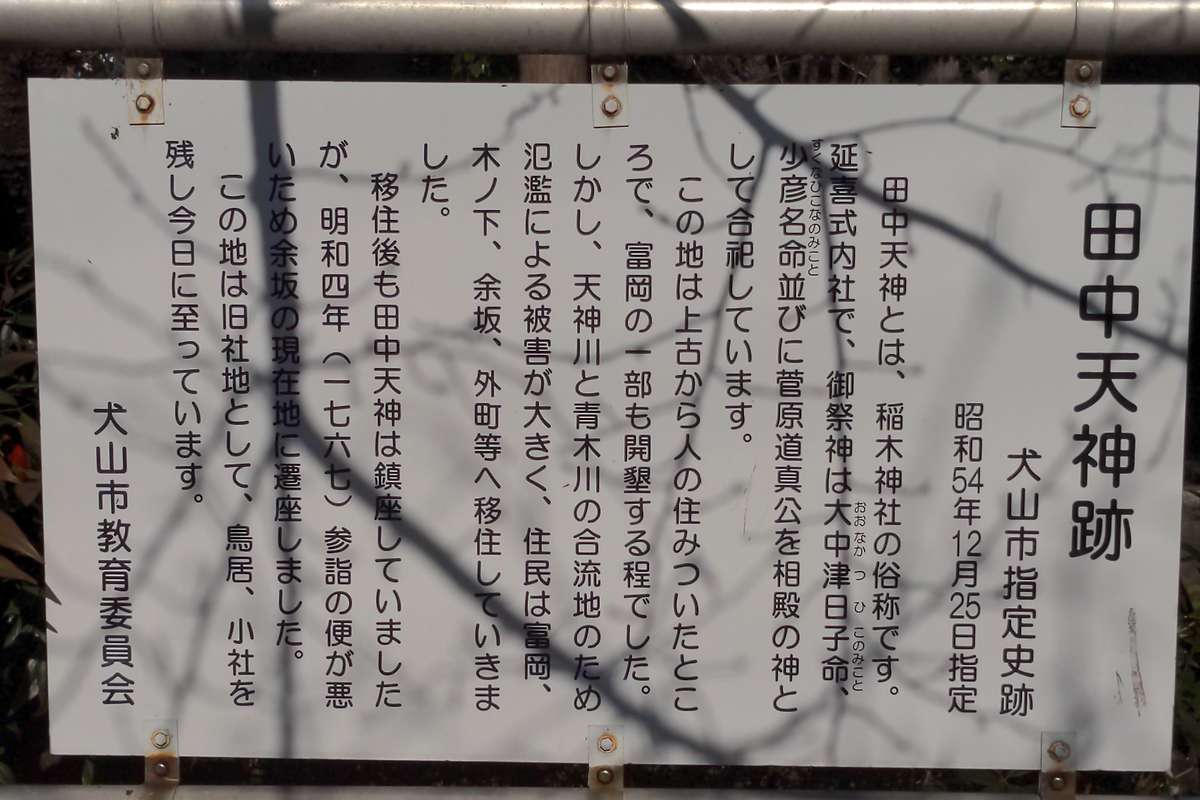 田中天神跡
犬山市指定史跡
昭和54年12月25日指定
田中天神とは、稲木神社の俗称です。
延喜式内社で、御祭神は大中津日子命、
おおなかつひこのみこと
少彦名命並びに菅原道真公を相殿の神と
すくなひこなのみこと
して合祀しています。
この地は上古から人の住みついたとこ
ろで、富岡の一部も開墾する程でした。
しかし、天神川と青木川の合流地のため
氾濫による被害が大きく、住民は富岡、
木ノ下、余坂、外町等へ移住していきま
した。
移住後も田中天神は鎮座していました
が、明和四年（一七六七）参詣の便が悪
いため余坂の現在地に遷座しました。
この地は旧社地として、鳥居、小社を
残し今日に至っています。
犬山市教育委員会